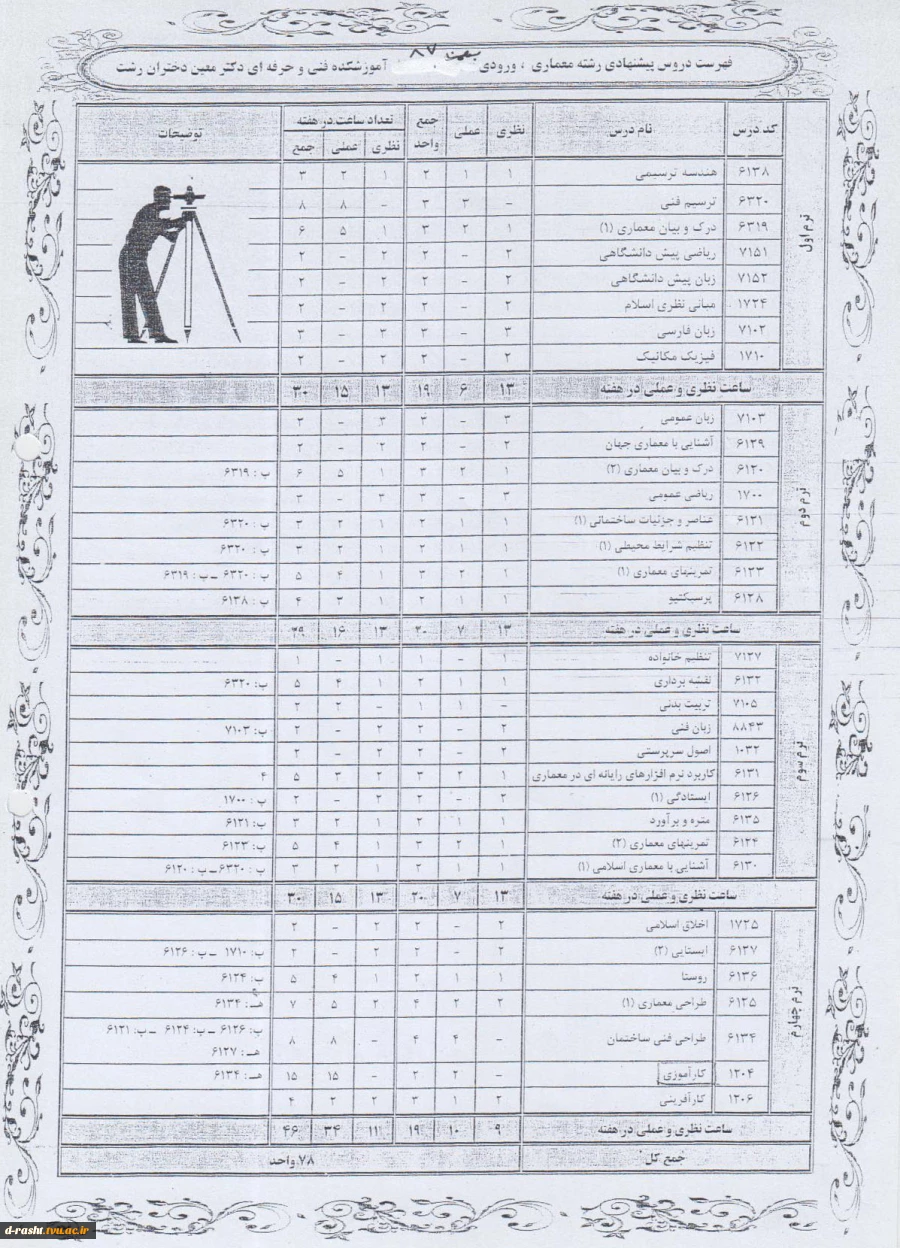 بهمن ۸۷
فهرست دروس پیشنهادی رشته معماری ، ورودی آموزشکده فنی و حرفه ای دکتر معین دختران رشت
کد درس نام درس نظری عملی جمع واحد تعداد ساعت در هفته توضیحات
نظری عملی جمع
ترم اول
۶۱۳۸ هندسه ترسیمی ۱ ۱ ۲ ۱ ۲ ۳
۶۳۲۰ ترسیم فنی - ۳ ۳ - ۸ ۸
۶۳۱۹ درک و بیان معماری (۱) ۱ ۲ ۳ ۱ ۵ ۶
۷۱۵۱ ریاضی پیش دانشگاهی ۲ - ۲ ۲ - ۲
۷۱۵۲ زبان پیش دانشگاهی ۲ - ۲ ۲ - ۲
۱۷۲۴ مبانی نظری اسلام ۲ - ۲ ۲ - ۲
۷۱۰۲ زبان فارسی ۳ - ۳ ۳ - ۳
۱۷۱۰ فیزیک مکانیک ۲ - ۲ ۲ - ۲
ساعت نظری و عملی در هفته ۱۳ ۶ ۱۹ ۱۳ ۱۵ ۳۰
ترم دوم
۷۱۰۳ زبان عمومی ۳ - ۳ ۳ - ۳
۶۱۲۹ آشنایی با معماری جهان ۲ - ۲ ۲ - ۲
۶۱۲۰ درک و بیان معماری (۲) ۱ ۲ ۳ ۱ ۵ ۶ پ : ۶۳۱۹
۱۷۰۰ ریاضی عمومی ۳ - ۳ ۳ - ۳
۶۱۲۱ عناصر و جزئیات ساختمانی (۱) ۱ ۱ ۲ ۱ ۲ ۳ پ : ۶۳۲۰
۶۱۲۲ تنظیم شرایط محیطی (۱) ۱ ۱ ۲ ۱ ۲ ۳ پ : ۶۳۲۰
۶۱۲۳ تمرینهای معماری (۱) ۱ ۲ ۳ ۱ ۴ ۵ پ : ۶۳۲۰ ـ پ : ۶۳۱۹
۶۱۲۸ پرسپکتیو ۱ ۱ ۲ ۱ ۳ ۴ پ : ۶۱۳۸
ساعت نظری و عملی در هفته ۱۳ ۷ ۲۰ ۱۳ ۱۶ ۲۹
ترم سوم
۷۱۲۷ تنظیم خانواده ۱ - ۱ ۱ - ۱
۶۱۳۲ نقشه برداری ۱ ۱ ۲ ۱ ۴ ۵ پ: ۶۳۲۰
۷۱۰۵ تربیت بدنی - ۱ ۱ - ۲ ۲
۸۸۴۳ زبان فنی ۲ - ۲ ۲ - ۲ پ: ۷۱۰۳
۱۰۳۲ اصول سرپرستی ۲ - ۲ ۲ - ۲
۶۱۳۱ کاربرد نرم افزارهای رایانه ای در معماری ۱ ۲ ۳ ۲ ۳ ۵ ۴
۶۱۲۶ ایستادگی (۱) ۲ - ۲ ۲ - ۲ پ : ۱۷۰۰
۶۱۳۵ متره و برآورد ۱ ۱ ۲ ۱ ۲ ۳ پ: ۶۱۲۱
۶۱۲۴ تمرینهای معماری (۲) ۱ ۲ ۳ ۱ ۴ ۵ پ: ۶۱۲۳
۶۱۳۰ آشنایی با معماری اسلامی (۱) ۱ ۱ ۲ ۱ ۲ ۳ پ : ۶۳۲۰ـ پ : ۶۱۲۰
ساعت نظری و عملی در هفته ۱۳ ۷ ۲۰ ۱۳ ۱۵ ۳۰
ترم چهارم
۱۷۲۵ اخلاق اسلامی ۲ - ۲ ۲ - ۲
۶۱۲۷ ایستایی (۲) ۲ - ۲ ۲ - ۲ پ: ۱۷۱۰ ـ پ : ۶۱۲۶
۶۱۳۶ روستا ۱ ۱ ۲ ۱ ۴ ۵ پ: ۶۱۲۴
۶۱۲۵ طراحی معماری (۱) ۲ ۲ ۴ ۲ ۵ ۷ هـ : ۶۱۳۴
۶۱۳۴ طراحی فنی ساختمان - ۴ ۴ - ۸ ۸ پ: ۶۱۲۶ ـ پ: ۶۱۲۴ ـ پ: ۶۱۲۱
هـ : ۶۱۲۷
۱۲۰۴ کارآموزی - ۲ ۲ - ۱۵ ۱۵ هـ : ۶۱۳۴
۱۲۰۶ کارآفرینی ۲ ۱ ۳ ۲ ۲ ۴
ساعت نظری و عملی در هفته ۹ ۱۰ ۱۹ ۱۱ ۳۴ ۴۶
جمع کل ۷۸ واحد
d-rasht.tvu.ac.ir